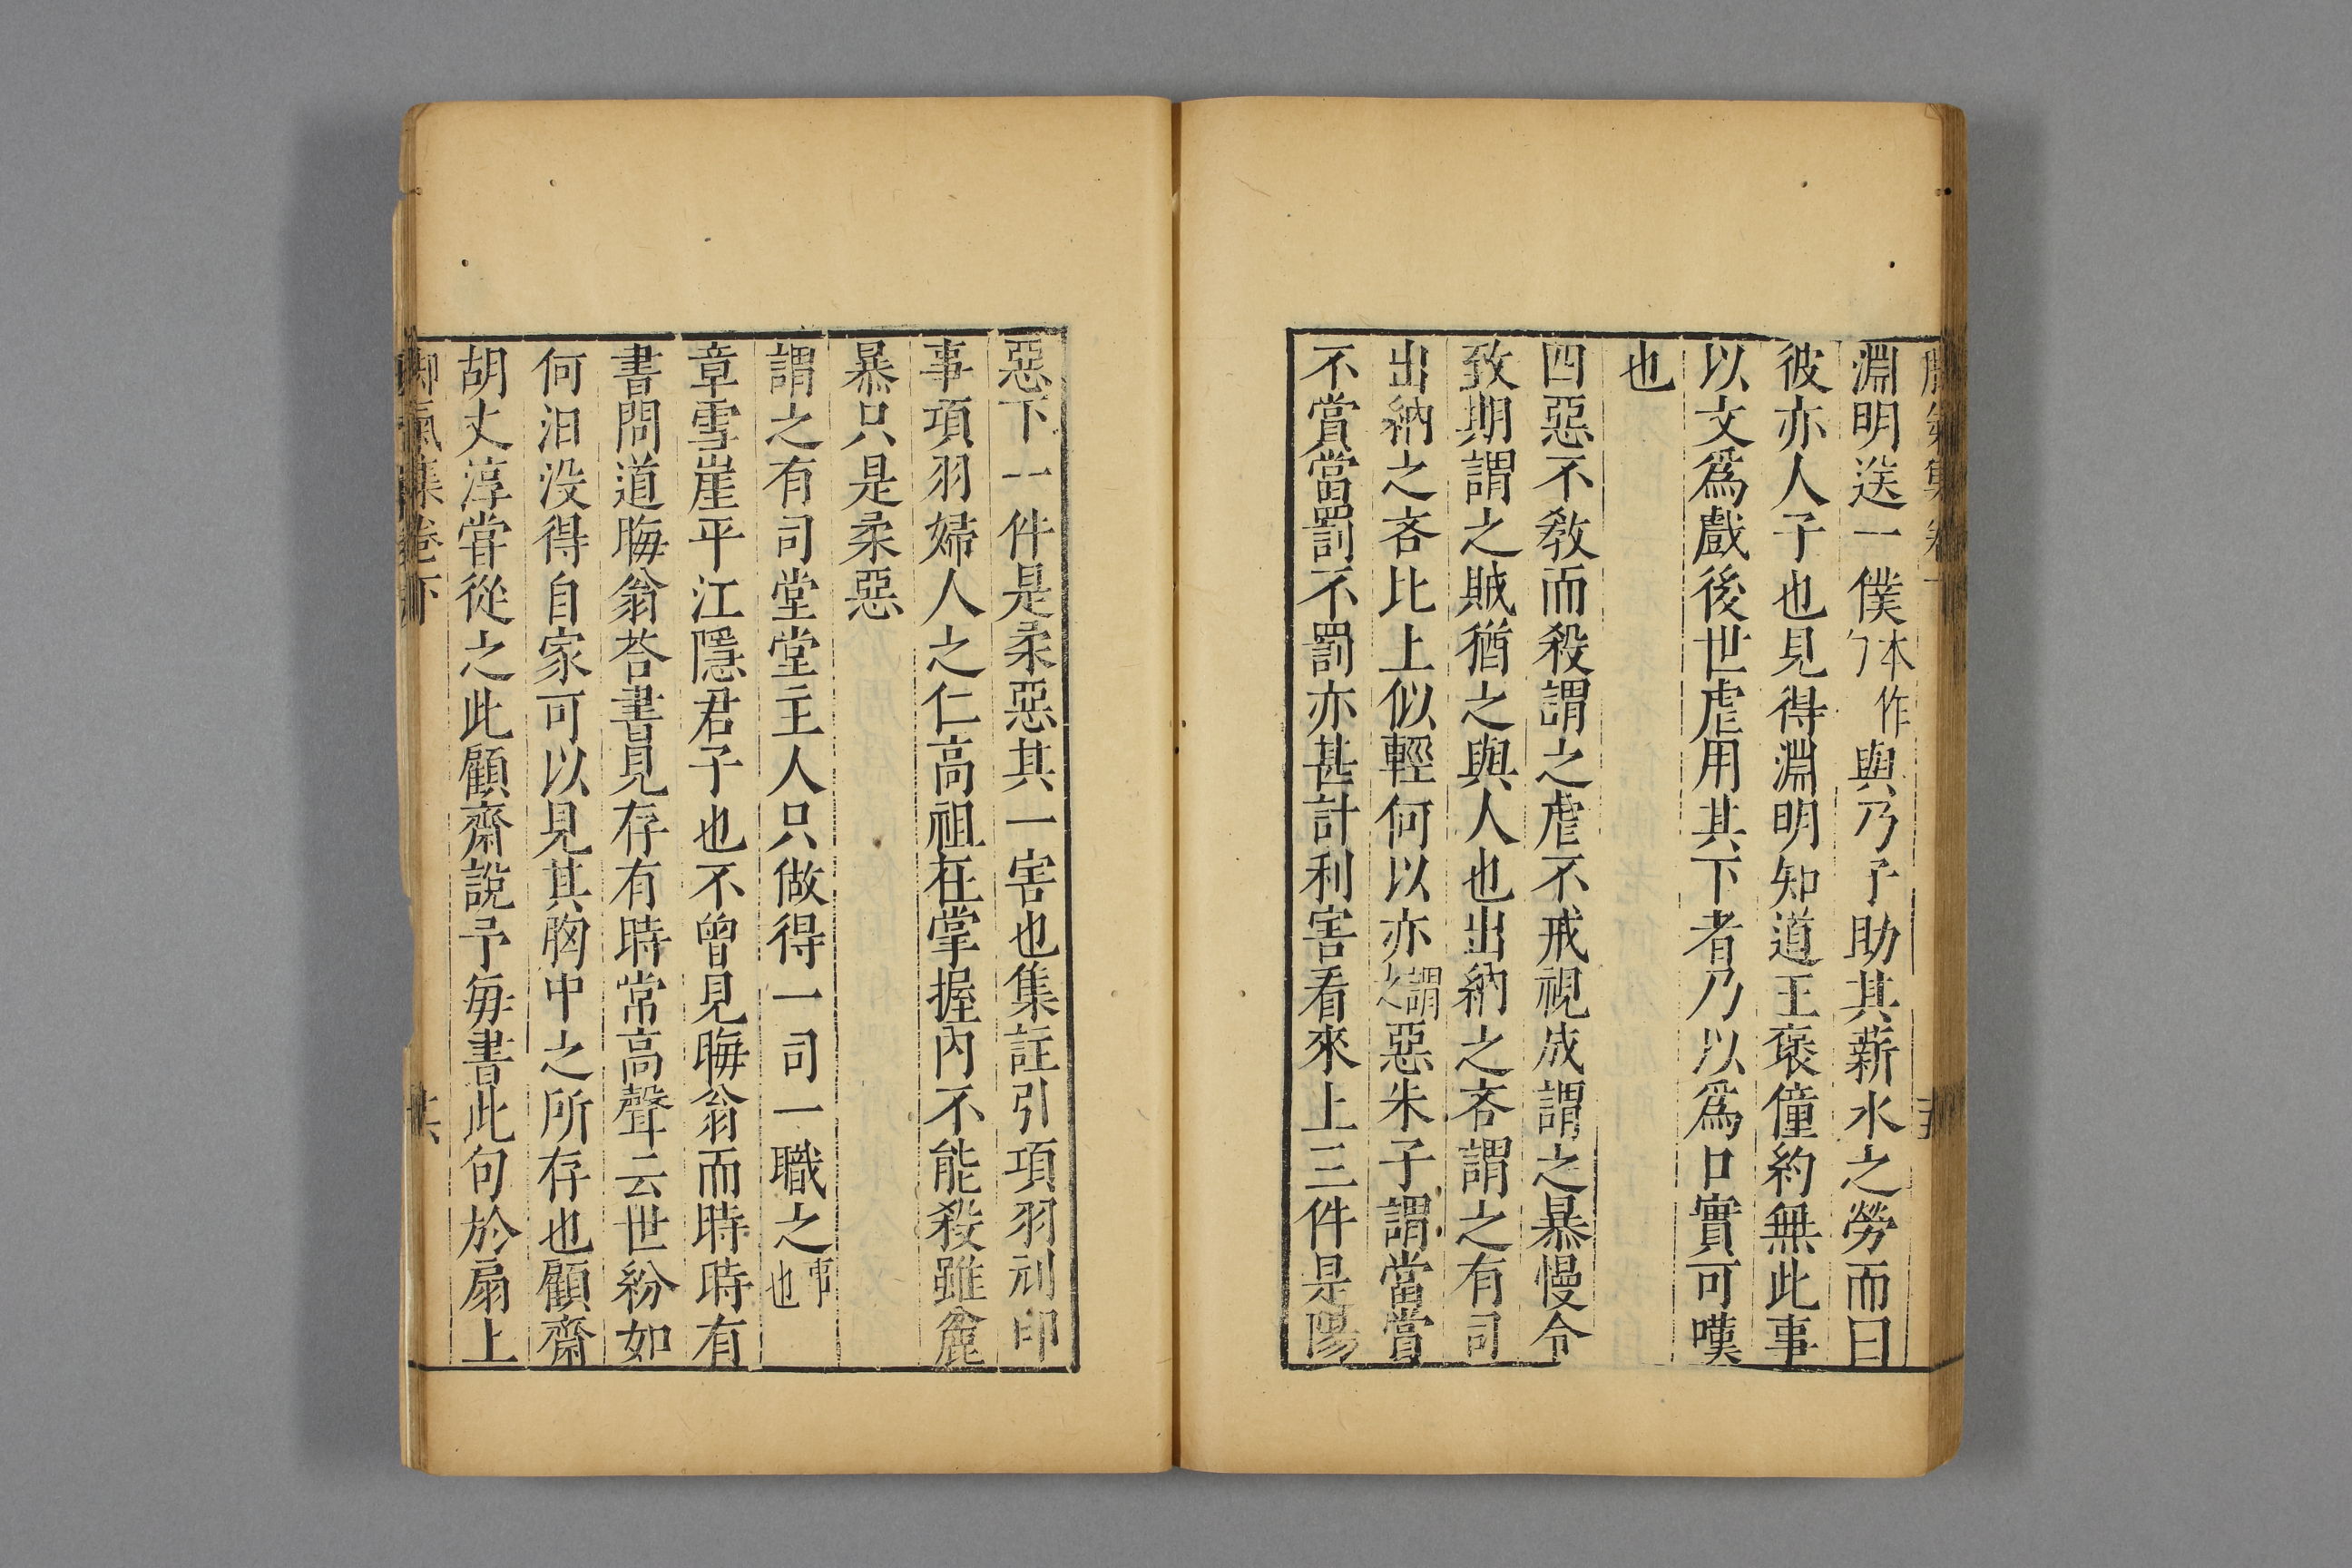 淵明送一僕本作力與乃子助其薪水之勞而曰
彼亦人子也見得淵明知道王褒僮約無此事
以文爲戲後世虐用其下者乃以爲口實可嘆
也
四惡不敎而殺謂之虐不戒視成謂之暴慢令
致期謂之賊猶之與人也出納之吝謂之有司
出納之吝比上似輕何以亦謂之惡朱子謂當賞
不賞當罰不罰亦甚計利害看來上三件是陽
惡下一件是柔惡其一害也集註引項羽刓印
事項羽婦人之仁高祖在掌握內不能殺雖麄
暴只是柔惡
謂之有司堂堂主人只做得一司一職之事也
章雪崖平江隱君子也不曾見晦翁而時時有
書問道晦翁荅書見存有時常高聲云世紛如
何汩没得自家可以見其胸中之所存也顧齋
胡丈淳嘗從之此顧齋說予每書此句於扇上
脚氣集卷下
六